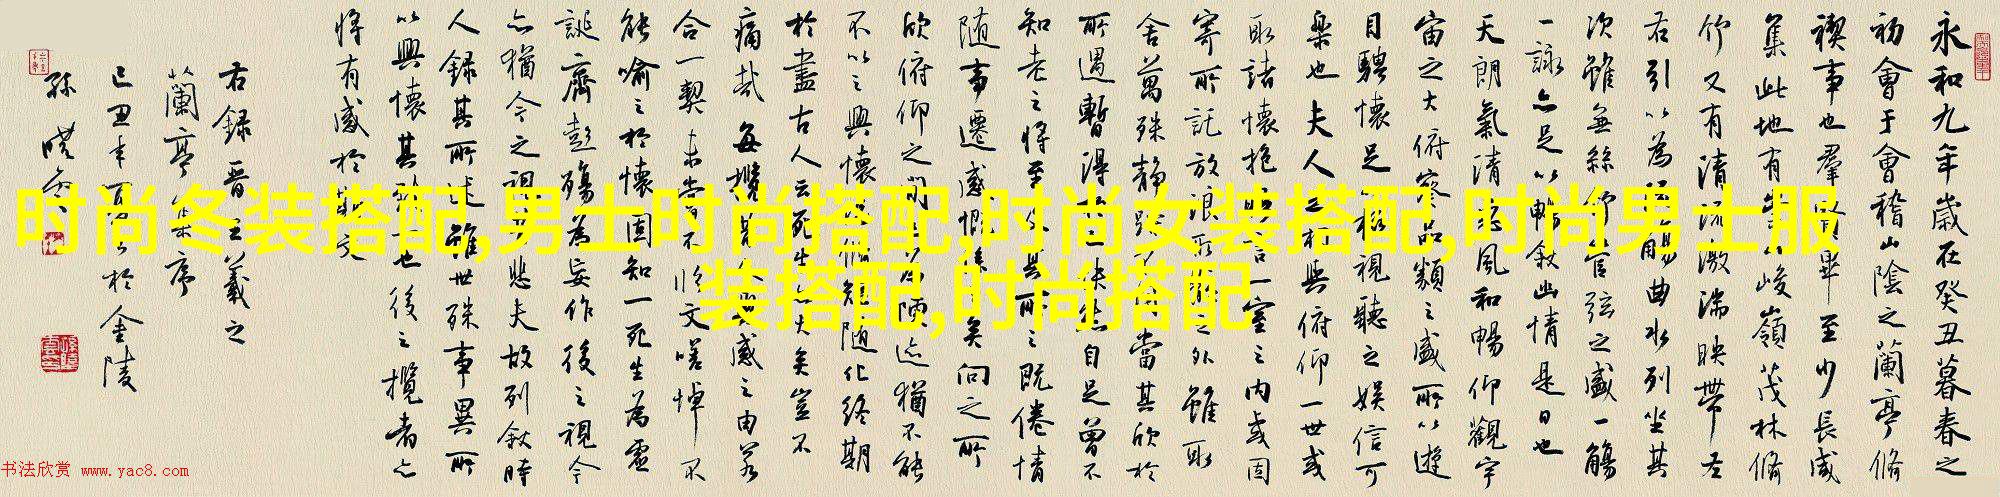 永和九年歲在癸丑暮春之
初會于會稽山陰之蘭亭脩
禊事也羣賢畢至少長咸
集此地有崇山峻嶺茂林脩
竹又有清流激湍映帶左
右引以為流觴曲水列坐其
次雖無絲竹管弦之盛一觴
一詠亦足以暢敘幽情是日也
天朗氣清惠風和暢仰觀宇
宙之大俯察品類之盛所以遊
目騁懷足以極視聽之娛信可
樂也夫人之相與俯仰一世或
取諸懷抱晤言一室之內或因
寄所託放浪形骸之外雖取
舍萬殊靜躁不同當其欣於
所遇暫得於己快然自足曾不
知老之將至及其所之既倦情
隨事遷感慨係之矣向之所
欣俯仰之間以為陳迹猶不能
不以之興懷況脩短隨化終期
於盡古人云死生亦大矣豈不
痛哉每攬昔人興感之由若
合一契未嘗不臨文嗟悼不
能喻之於懷固知一死生為虛
誕齊彭殤為妄作後之視今
亦猶今之視昔悲夫故列敘時
人錄其所述雖世殊事異所
以興懷其致一也後之攬者亦
將有感於斯文
右錄晉王羲之
蘭亭集序
己丑年夏於金陵
孫曉雲
时尚冬装搭配,男士时尚搭配,时尚女装搭配,时尚男士服
装搭配,时尚搭配
书法欣赏 www.yac8.com